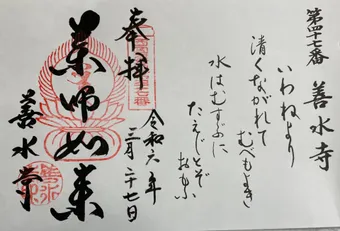 第四十七番 善水寺
いわねより
清くながれて
水はむすぶに
たえじとぞ
おもふ
奉拝
令和六年
三月二十七日
薬師如来
善水堂